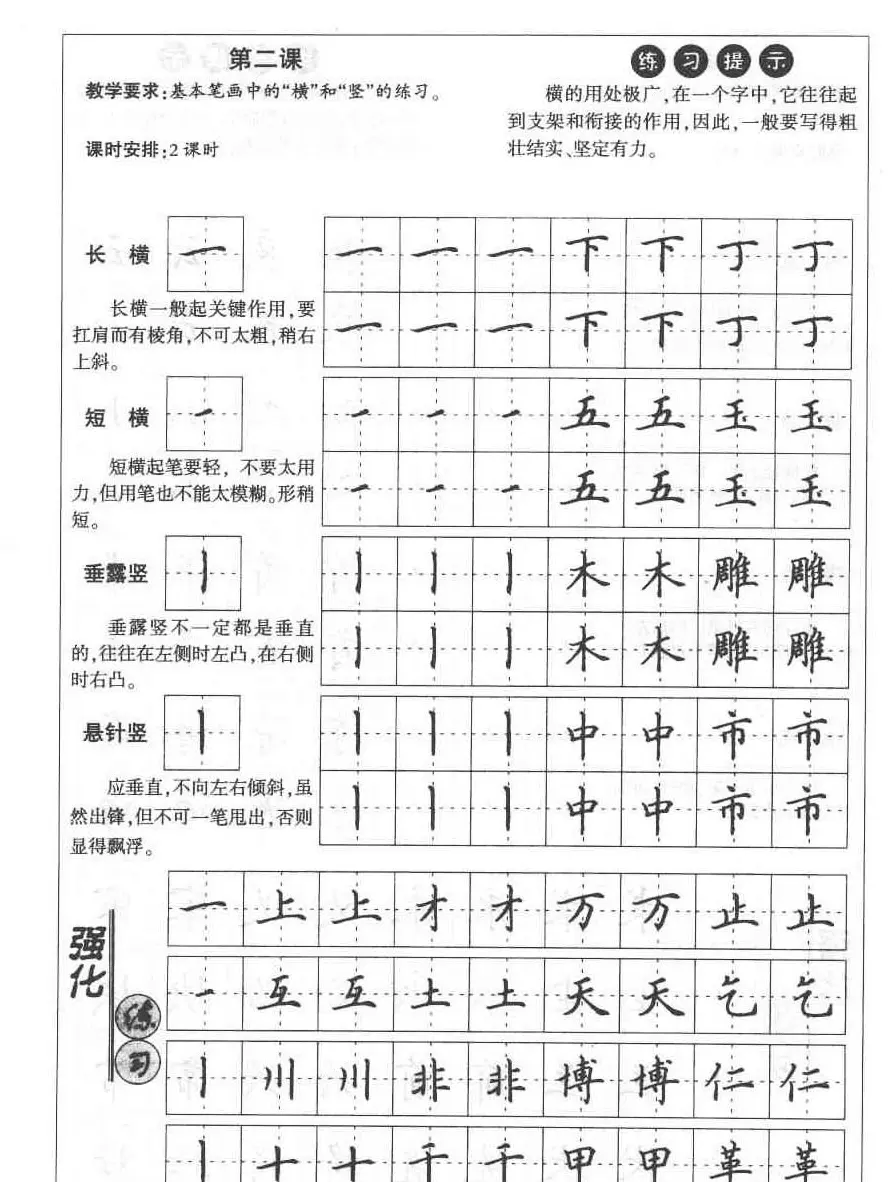 第二课
教学要求:基本笔画中的“横”和“竖”的练习。
课时安排:2课时
练习提示
横的用处极广,在一个字中,它往往起
到支架和衔接的作用,因此,一般要写得粗
壮结实、坚定有力。
长横 一 一 一 一 下 下 丁 丁
一 一 一 下 下 丁 丁
长横一般起关键作用,要
扛肩而有棱角,不可太粗,稍右
上斜。
短横 一 一 一 一 五 五 玉 玉
一 一 一 五 五 玉 玉
短横起笔要轻,不要太用
力,但用笔也不能太模糊。形稍
短。
垂露竖 丨 丨 丨 丨 木 木 雕 雕
丨 丨 丨 木 木 雕 雕
垂露竖不一定都是垂直
的,往往在左侧时左凸,在右侧
时右凸。
悬针竖 丨 丨 丨 丨 中 中 市 市
丨 丨 丨 中 中 市 市
应垂直,不向左右倾斜,虽
然出锋,但不可一笔甩出,否则
显得飘浮。
强化练习
一 上 上 才 才 万 万 止 止
一 互 互 土 土 天 天 乞 乞
丨 川 川 非 非 博 博 仁 仁
丨 十 十 干 干 甲 甲 革 革